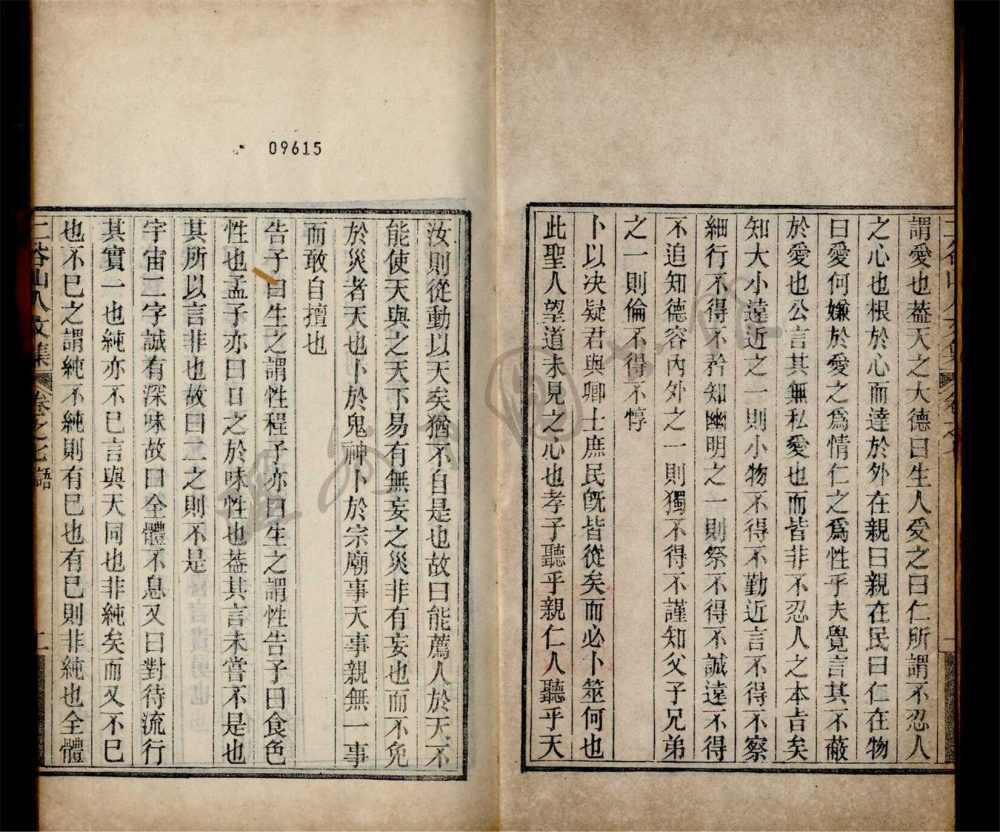 謂愛也葢天之大德曰生人受之曰仁所謂不忍人
之心也根於心而達於外在親曰親在民曰仁在物
曰愛何嫌於愛之爲情仁之爲性乎夫覺言其不蔽
於愛也公言其無私愛也而皆非不忍人之本吉矣
知大小遠近之一則小物不得不勤近言不得不察
細行不得不矜知幽明之一則祭不得不誠遠不得
不追知德容內外之一則獨不得不謹知父子兄弟
之一則倫不得不惇
卜以決疑君與卿士庶民旣皆從矣而必卜筮何也
此聖人望道未見之心也孝子聽乎親仁人聽乎天
09615
汝則從動以天矣猶不自是也故曰能薦人於天不
能使天與之天下易有無妄之災非有妄也而不免
於災者天也卜於鬼神卜於宗廟事天事親無一事
而敢自擅也
告子曰生之謂性程子亦曰生之謂性告子曰食色
性也孟子亦曰口之於味性也葢其言未嘗不是也
其所以言非也故曰二之則不是
宇宙二字誠有深味故曰全體不息又曰對待流行
其實一也純亦不巳言與天同也非純矣而又不巳
也不巳之謂純不純則有巳也有巳則非純也全體
二谷山人文集 卷之七 語